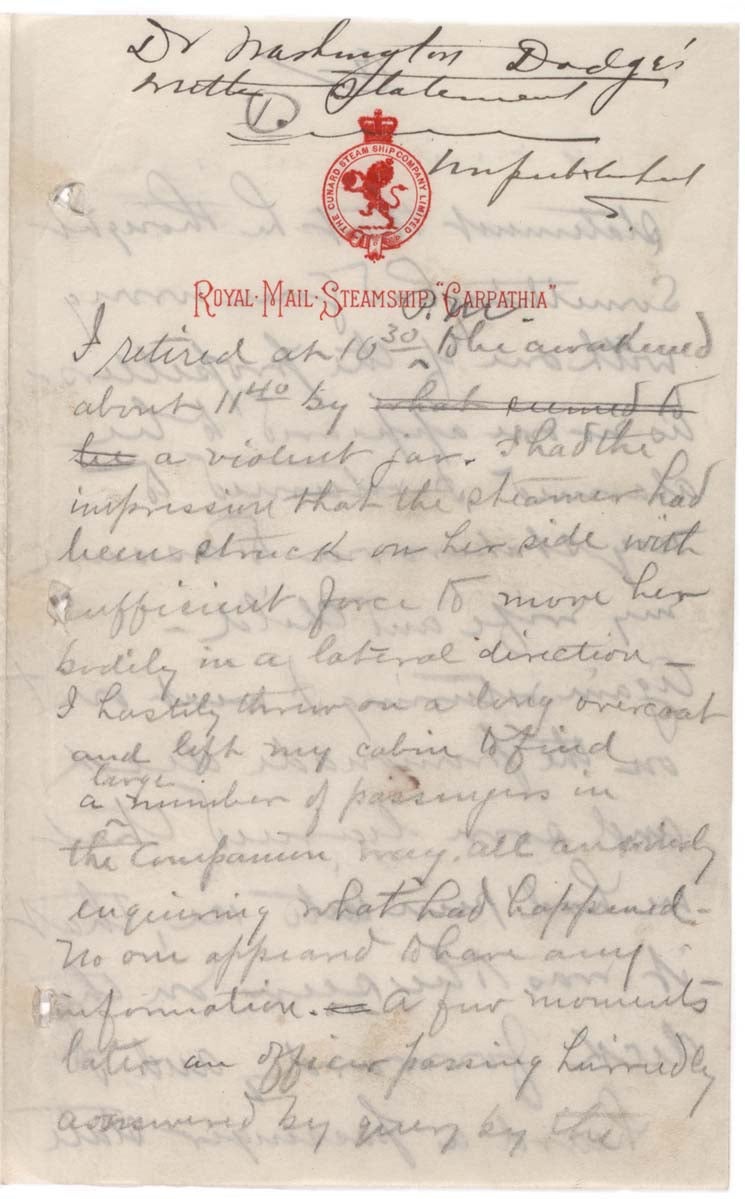 Dr Washington Dodge's
Statement
1.
Unpublished
THE CUNARD STEAM SHIP COMPANY LIMITED
ROYAL·MAIL·STEAMSHIP "CARPATHIA"
P.M.
I retired at 10 30 to be awakened
about 11 40 by what seemed to
be a violent jar. I had the
impression that the steamer had
been struck on her side with
sufficient force to move her
bodily in a lateral direction –
I hastily threw on a long overcoat
and left my cabin to find
large
a number of passengers in
the Companion way, all anxiously
enquiring what had happened –
No one appeared to have any
information. A few moments
later an officer passing hurriedly
answered my query by the